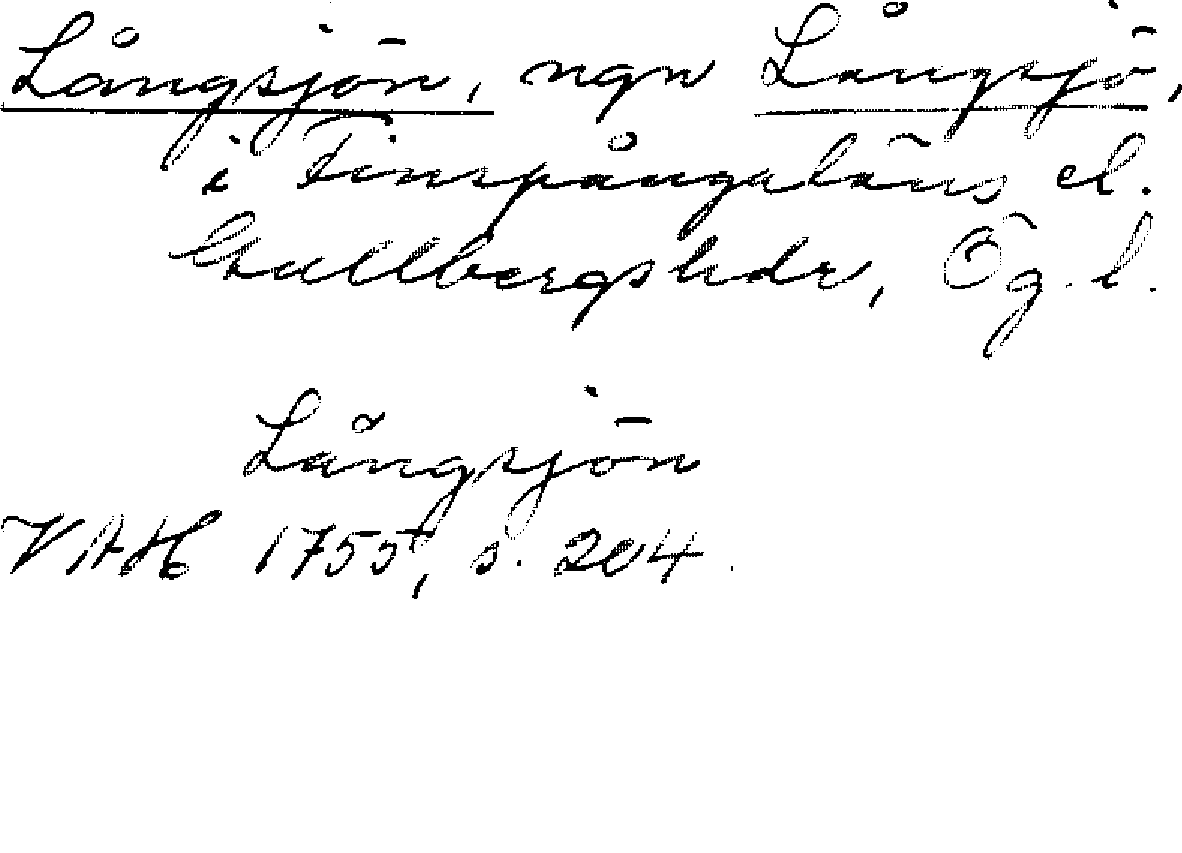 Långsjön, ngn Långsjö,
i Finspångaläns el.
Gullbergs hdr, Ög. l.
Långsjön
VAH 1755, s. 204.